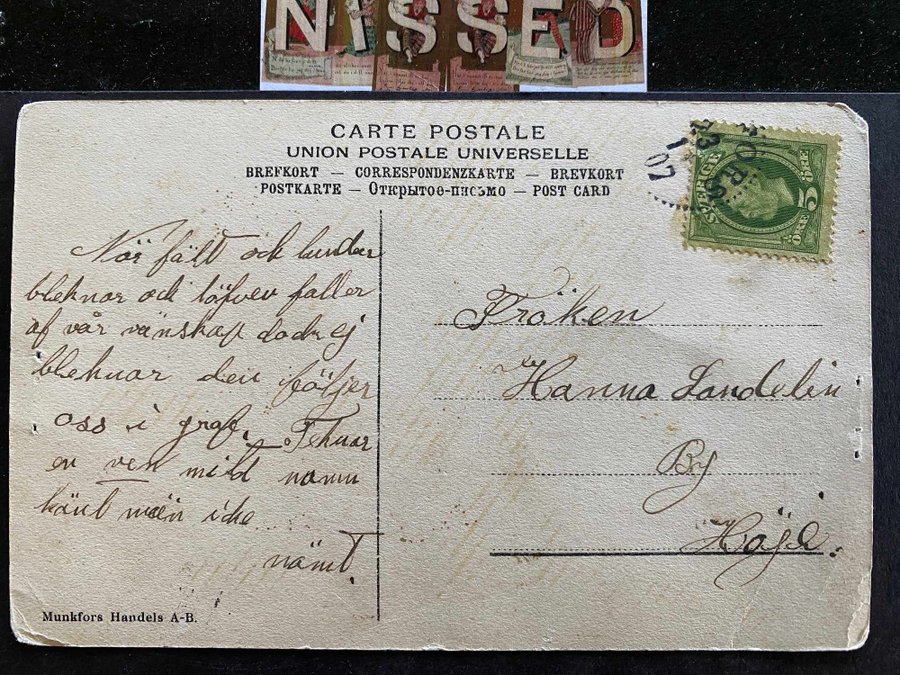 NISSED
CARTE POSTALE
UNION POSTALE UNIVERSELLE
BREFKORT — CORRESPONDENZKARTE — BREVKORT
POSTKARTE — Открытое-письмо — POST CARD
SVERIGE
5
ÖRE
ÖRE
1 07
När fält och lunder
bleknar och löfven faller
af vår vänskap dock ej
bleknar den följer
oss i graf.
en ven mild namn
känt män icke
nämt.
Fröken
Hanna Landelin
By
Höje.
Munkfors Handels A-B.